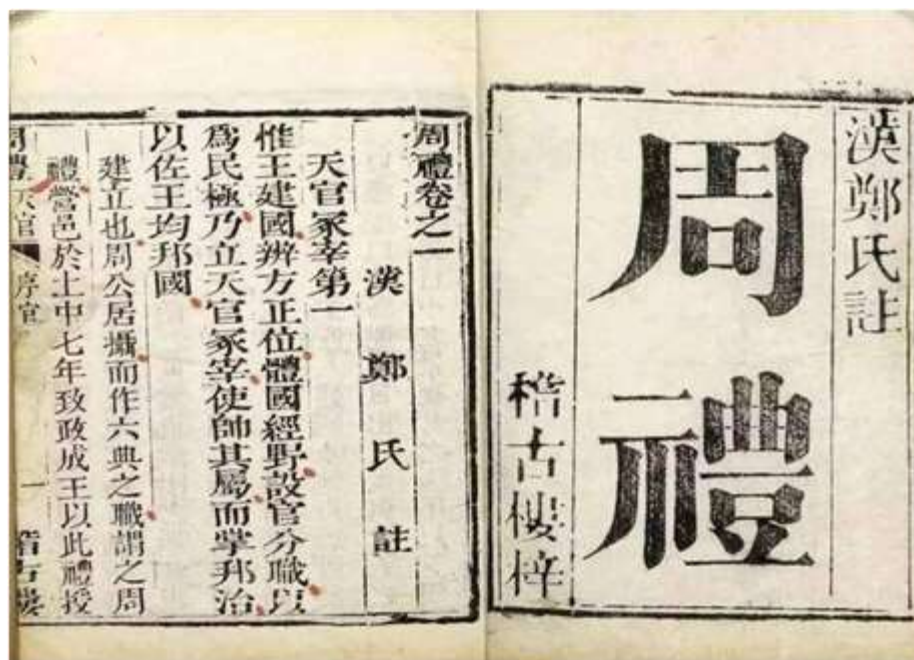 漢鄭氏註
周禮
稽古樓梓
周禮卷之一
漢鄭氏註
天官冢宰第一
惟王建國辨方正位體國經野設官分職以
爲民極乃立天官冢宰使帥其屬而掌邦治
以佐王均邦國
建立也周公居攝而作六典之職謂之周
禮營邑於土中七年致政成王以此禮授
周禮天官 序官 一 稽古樓